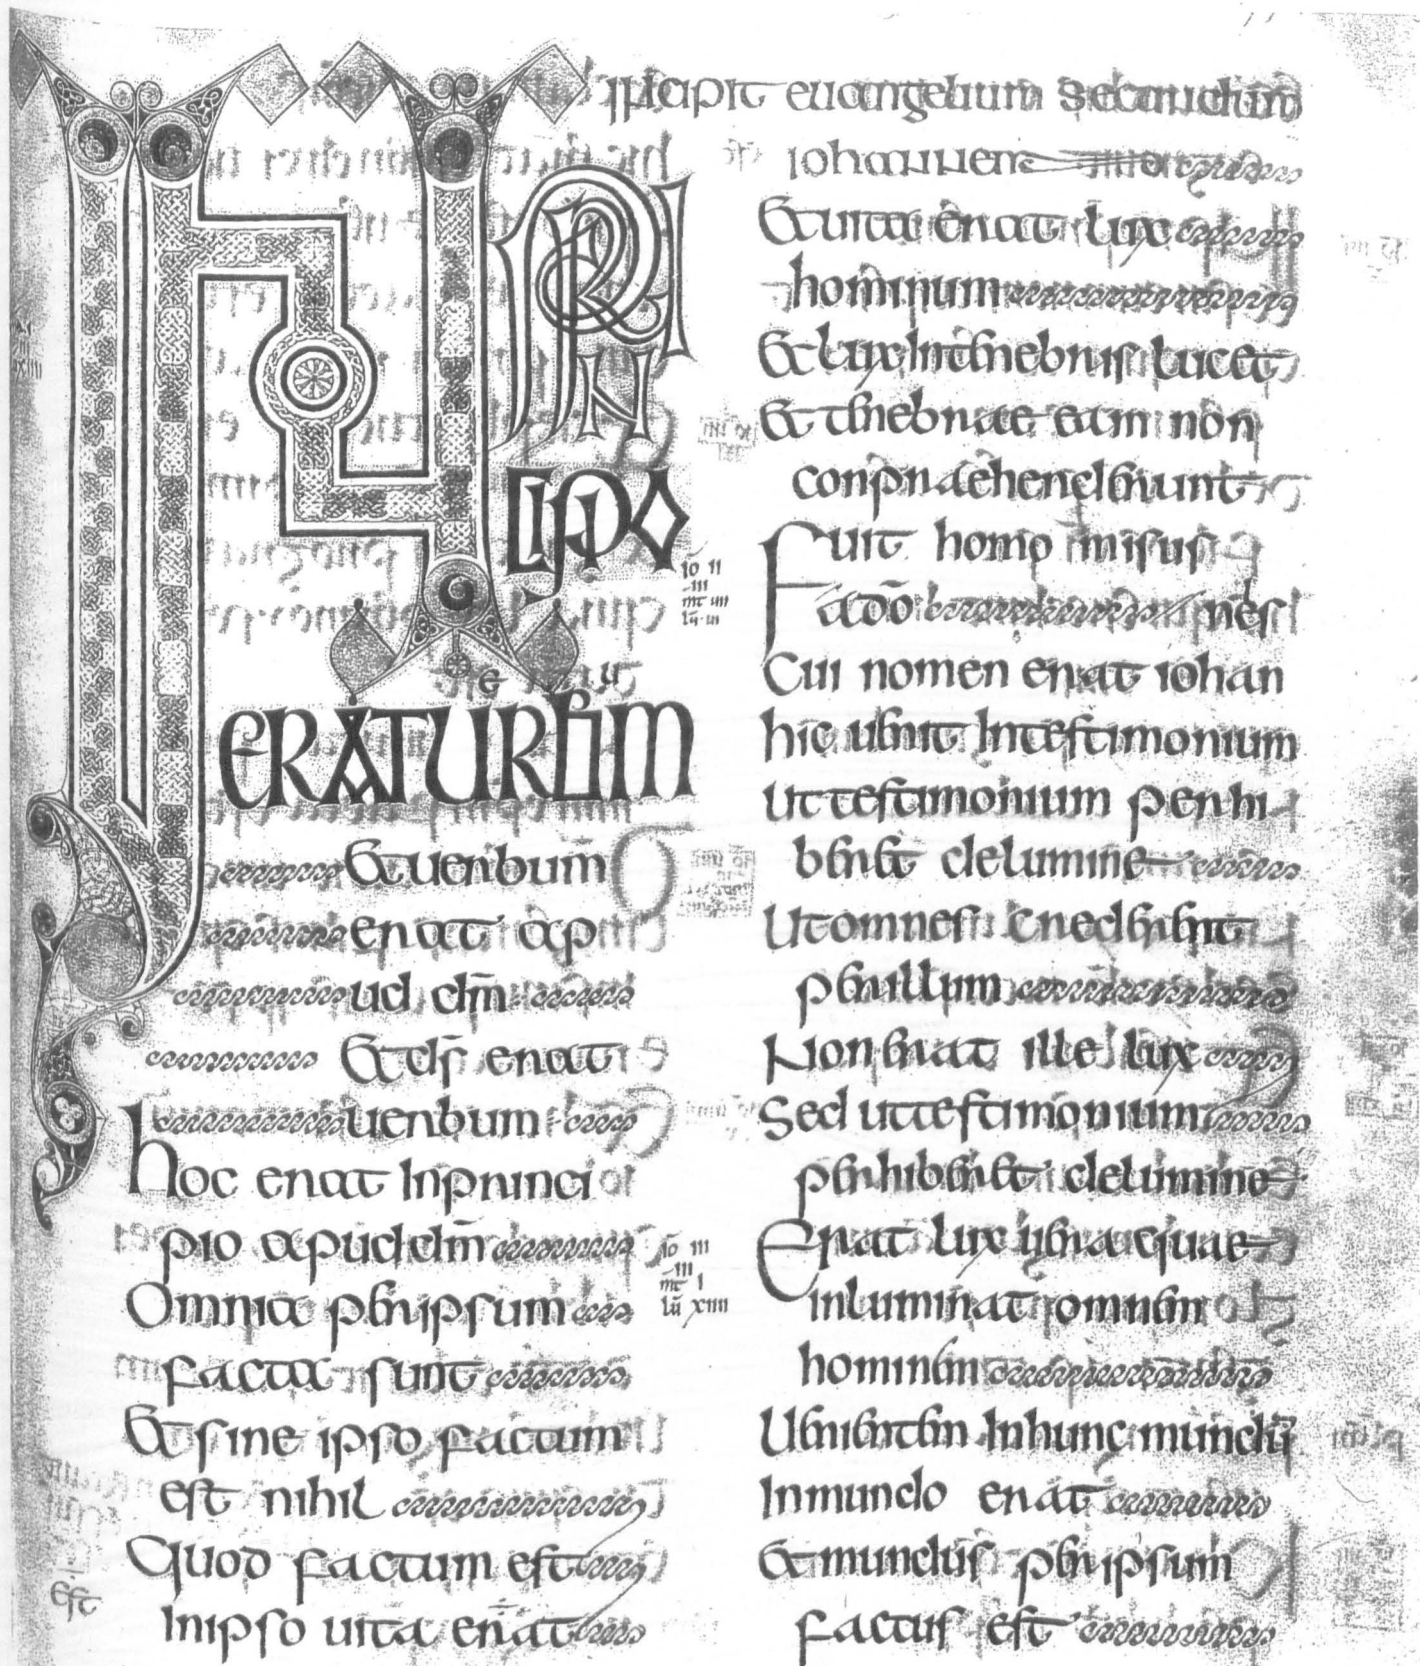 Incipit euangelium secundum
iohannen
IN
PRIN
CIPIO
e u
ERATUERBUM
Et uerbum
erat ap
ud dm̄
Et ds̄ erat
uerbum
hoc erat inprinci
pio apud dm̄
Omnia peripsum
facta sunt
Et sine ipso factum
est nihil
Quod factum est
est
Inipso uita erat
io ii
iii
mt iiii
lu iii
io iii
iii
mt i
lu xiiii
Et uita erat lux
hominum
Et lux intenebris lucet
Et tenebrae eam non
conpraehenderunt
Fuit homo misus
ado̅ nes
Cui nomen erat iohan
hic uenit intestimonium
Ut testimonium perhi
beret delumine
Ut omnes crederent
perillum
Non erat ille lux
Sed ut testimonium
perhiberet delumine
Erat lux uera quae
inluminat omnem
hominem
Uenientem inhunc mundū
Inmundo erat
Et mundus peripsum
factus est